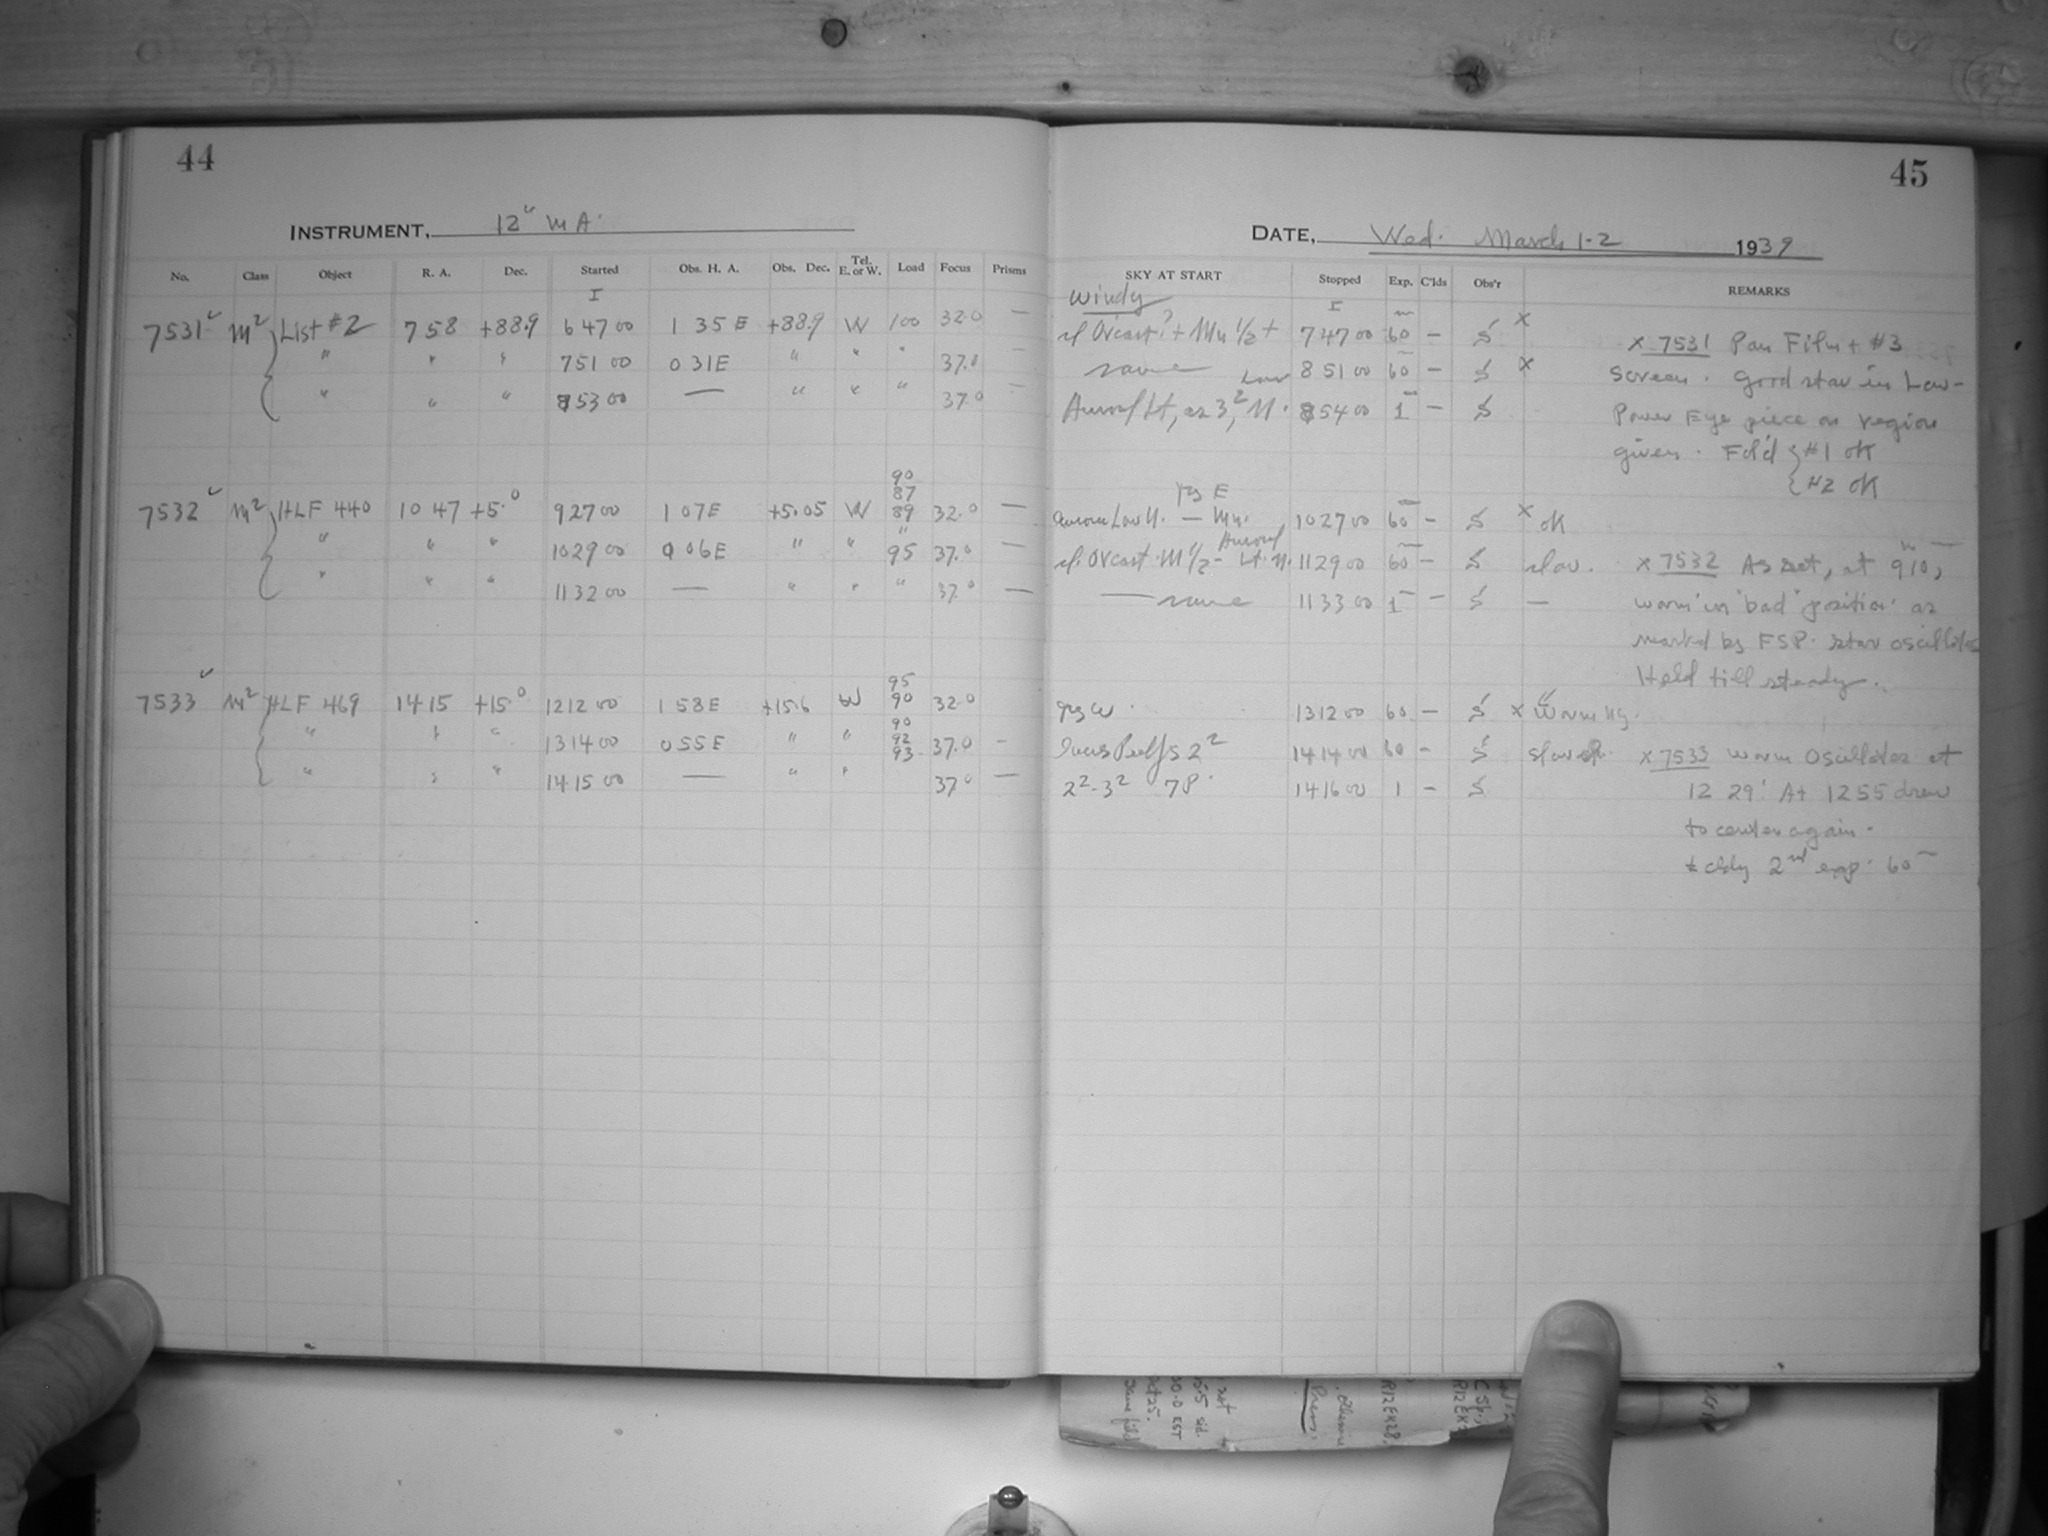 44
INSTRUMENT, 12" MA
No. Class Object R. A. Dec. Started Obs. H. A. Obs. Dec. Tel. E. or W. Load Focus Prisms
I
7531 M² List #2 7 58 +88.9 6 47 00 1 35 E +88.9 W 100 32.0 —
" " " 7 51 00 0 31 E " " " 37.0 —
" " " 8 53 00 — " " " 37.0 —
90
87
7532 M² HLF 440 10 47 +5.0 9 27 00 1 07 E +5.05 W 89 32.0 —
" " " 10 29 00 0 06 E " " " 95 37.0 —
" " " 11 32 00 — " " " 37.0 —
95
7533 M² HLF 469 14 15 +15.0 12 12 00 1 58 E +15.6 W 90 32.0
90
" " " 13 14 00 0 55 E " " 92 37.0 —
93
" " " 14 15 00 — " " 37.0 —
45
DATE, Wed. March 1-2 1939
SKY AT START Stopped Exp. C'lds Obs'r REMARKS
Windy I
Ov'cast? + Mn 1/2 + 7 47 00 60 — S x
same 8 51 00 60 — S x
Low
8 54 00 1 — S
x 7531 Pan Film + #3
Screen. Good star in Low-
Power Eye piece on region
given. Fol'd #1 OK
#2 OK
Aurora Low N. — Mn. 10 27 00 60 — S x OK
Ovcast M 1/2 - Lt. N. 11 29 00 60 — S
— same 11 33 00 1 — S —
x 7532 As set, at 9 10,
worm in "bad" position as
marked by FSP. star oscillates
Held till steady.
13 12 00 60 — S x
2² 14 14 00 60 — S
2²-3² 7P 14 16 00 1 — S
x 7533 worm Oscillates at
12 29. At 12 55 drew
to center again.
2nd exp. 60